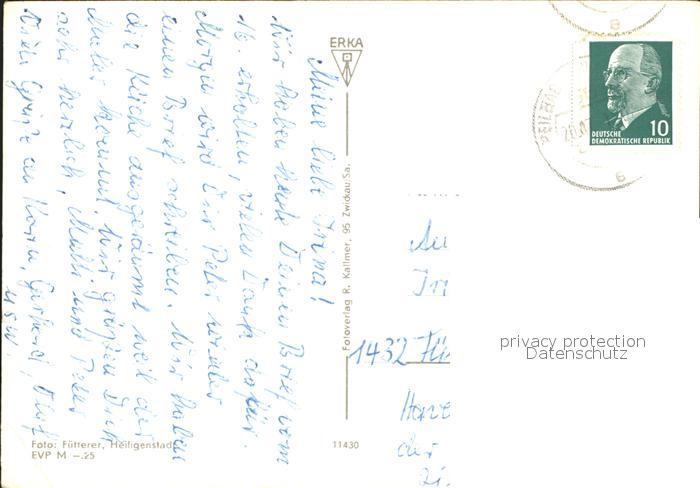 Meine liebe Irina!
Wir haben heute Deinen Brief vom
16. erhalten, vielen Dank dafür.
Morgen wird Dir Peter wieder
einen Brief schreiben. Wir haben
die Küche ausgeräumt weil der
Maler kommt. Wir grüßen Dich
sehr herzlich, Mutti und Peter
Viele Grüße an Karin, Gerhard, Olaf
usw.
ERKA
Fotoverlag R. Kallmer, 95 Zwickau Sa.
Foto: Fütterer, Heiligenstadt
EVP M -.25
11430
10
DEUTSCHE
DEMOKRATISCHE REPUBLIK
An
1432 Für
Have
der
privacy protection
Datenschutz